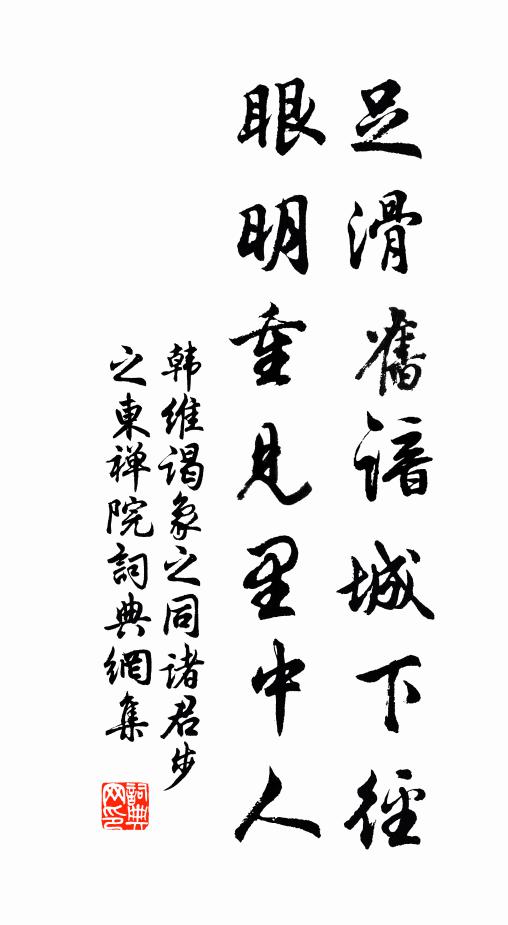 足滑舊諳城下徑
眼明重見里中人
韩维谒象之同诸君步
之東禅院詞典網集
詞典网印